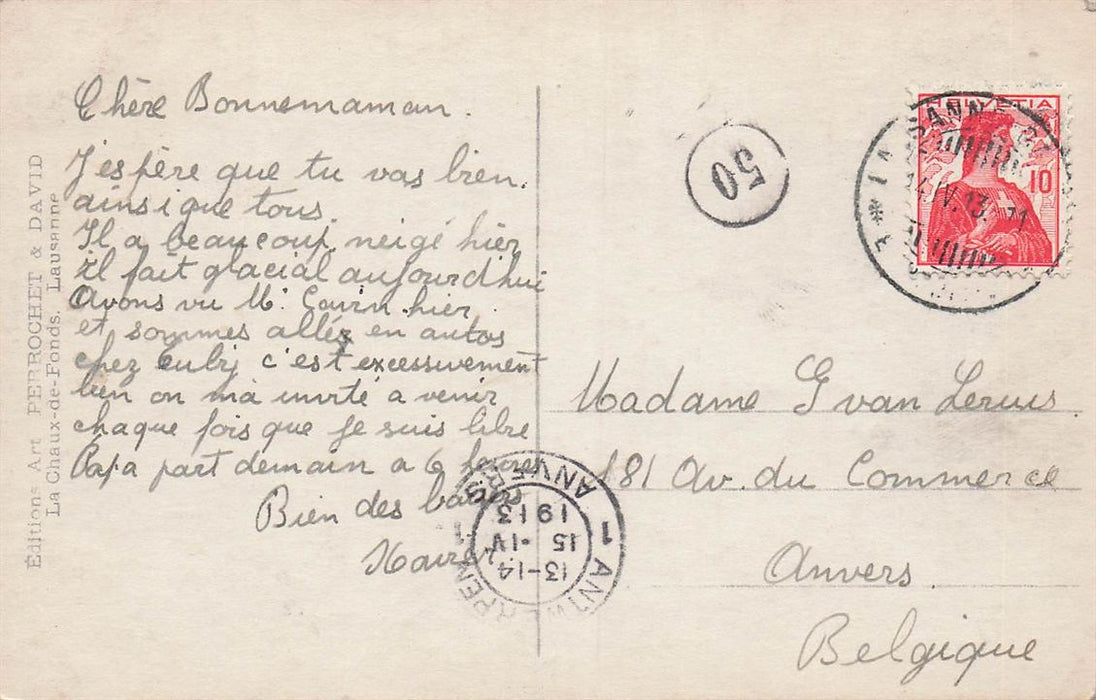 Chère Bonnemaman.
J'espère que tu vas bien.
ainsi que tous.
Il a beaucoup neigé hier
il fait glacial aujourd'hui
Avons vu Mr hier
et sommes allés en autos
chez c'est excessivement
bien on m'a invité a venir
chaque fois que je suis libre
Papa part demain a 6 heures
Bien des baisers
Éditions Art PERROCHET & DAVID
La Chaux-de-Fonds, Lausanne
50
HELVETIA
10
LAUSANNE
14.IV.13.
Madame G van Lerius
181 Av. du Commerce
Anvers.
Belgique
1 ANTWERPEN 1
13-14
15-IV
1913
ANVERS